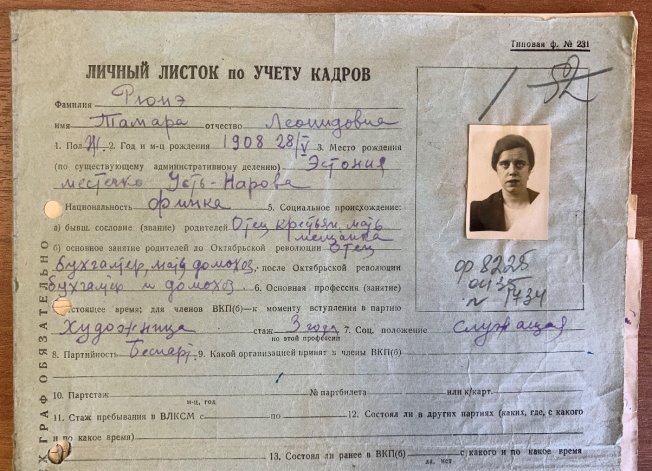 Типовая ф. № 231
ЛИЧНЫЙ ЛИСТОК по УЧЕТУ КАДРОВ
52
Фамилия Рюнэ
имя Тамара отчество Леонидовна
1. Пол Ж 2. Год и м-ц рождения 1908 28/V 3. Место рождения
(по существующему административному делению) Эстония
местечко Усть-Нарова
Национальность финка 5. Социальное происхождение:
а) бывш. сословие (звание) родителей Отец крестьян, мать
мещанка
б) основное занятие родителей до Октябрьской революции Отец
бухгалтер, мать домохоз. после Октябрьской революции
бухгалтер и домохоз. 6. Основная профессия (занятие)
стоящее время; для членов ВКП(б)—к моменту вступления в партию
Художница стаж 3 года 7. Соц. положение служащая
по этой профессии
8. Партийность Беспарт. 9. Какой организацией принят в члены ВКП(б)
10. Партстаж № партбилета или к/карт.
м-ц, год
11. Стаж пребывания в ВЛКСМ 12. Состоял ли в других партиях (каких, где, с какого
и по какое время)
13. Состоял ли ранее в ВКП(б) с какого и по какое время
да, нет
ф 8225
оп 35
N 1734
ГРАФ ОБЯЗАТЕЛЬНО